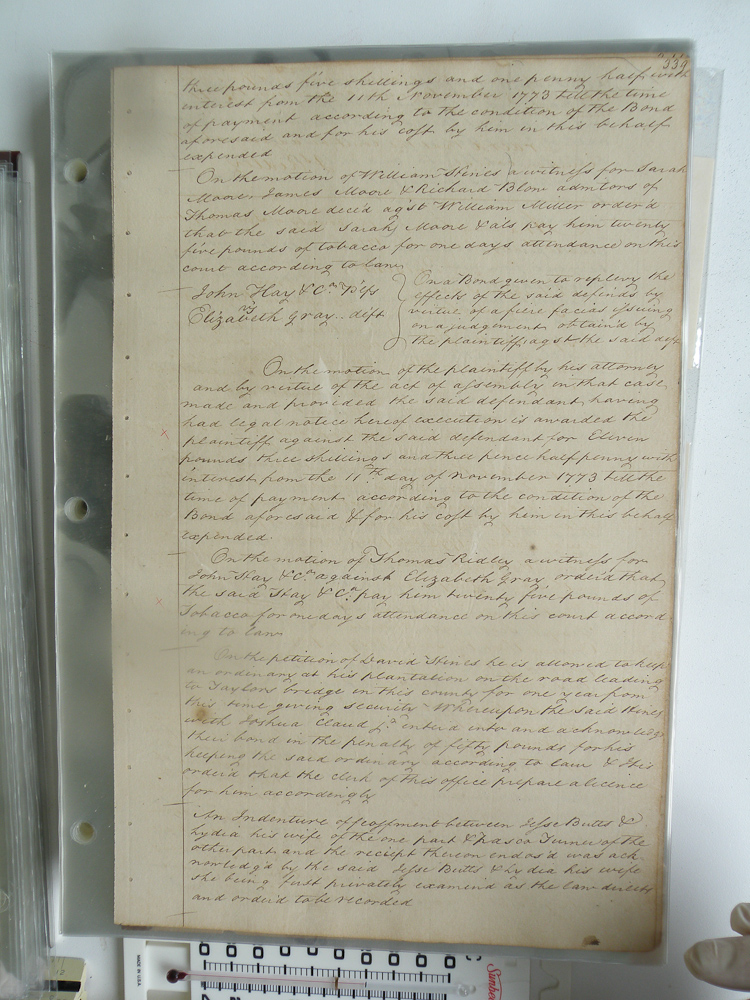 339
three pounds five shillings and one penny half with
interest from the 11th November 1773 till the time
of payment according to the condition of the Bond
aforesaid and for his cost by him in this behalf
expended
On the motion of William Hines a witness for Sarah
Moore, James Moore & Richard Blow admtors of
Thomas Moore dece'd ag'st William Miller order'd
that the said Sarah Moore & als pay him twenty
five pounds of tobacco for one days attendance on this
court according to law
John Hay & Co. Pl'fs
vs
Elizabeth Gray .. deft
On a Bond given to replevy the
effects of the said defend's by
virtue of a fiere facias issuing
on a judgement obtain'd by
the plaintiff agst the said def
On the motion of the plaintiff by his attorney
and by virtue of the act of assembly in that case
made and provided the said defendant having
had legal notice hereof execution is awarded the
plaintiff against the said defendant for Eleven
pounds three shillings and three pence half penny with
interest from the 11th day of November 1773 till the
time of payment according to the condition of the
Bond aforesaid & for his cost by him in this behalf
expended.
On the motion of Thomas Ridley a witness for
John Hay & Co. against Elizabeth Gray order'd that
the said Hay & Co. pay him twenty five pounds of
Tobacco for one days attendance on this court accord
ing to law
On the petition of David Hines he is allowed to keep
an ordinary at his plantation on the road leading
to Taylors bridge in this county for one year from
this time giving security Whereupon the said Hines
with Joshua Claud jr. enter'd into and acknowledg'd
their bond in the penalty of fifty pounds for his
keeping the said ordinary according to law & this
order'd that the clerk of this office prepare a licence
for him accordingly
An Indenture of feoffment between Jesse Butts &
Lydia his wife of the one part & Pasco Turner of the
other part and the reciept thereon endos'd was ack
nowledg'd by the said Jesse Butts & Lydia his wife
she being first privately examin'd as the law directs
and order'd to be recorded
MADE IN U.S.A.
12